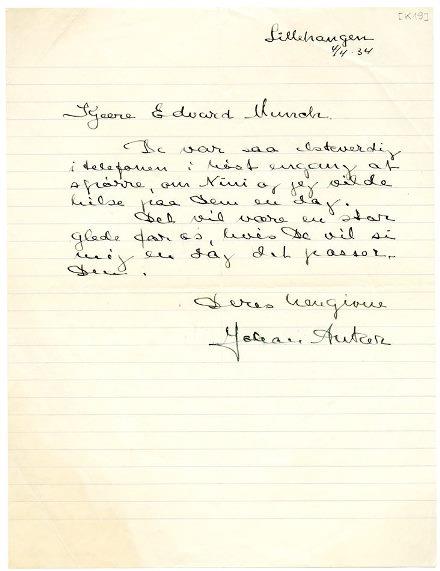 [K19]
Lillehaugen
4/4-34
Kjære Edvard Munch.
De var saa elskverdig
i telefonen i høst engang at
spørre, om Nini og jeg vilde
hilse paa Dem en dag.
Det vil være en stor
glede for os, hvis De vil si
mig en dag det passer
Dem.
Deres hengivne
Johan Anker